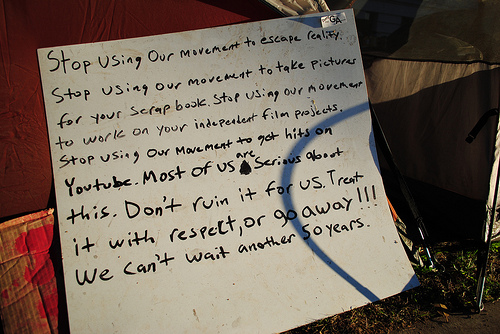 GA
Stop Using Our Movement to escape reality.
Stop using our movement to take pictures
for your scrapbook. Stop using our movement
to work on your independent film projects.
Stop using Our Movement to get hits on
Youtube. Most of us are Serious about
this. Don't ruin it for us. Treat
it with respect, or go away!!!
We can't wait another 50 years.